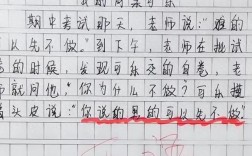 我的同桌可乐
期中考试那天，老师说：“难的
可以先不做。”到下午，老师在批试
卷的时候，发现可乐交的白卷，老
师就问他：“你为什么不做？”可乐摸
着头皮说：“你说的难的可以先不做